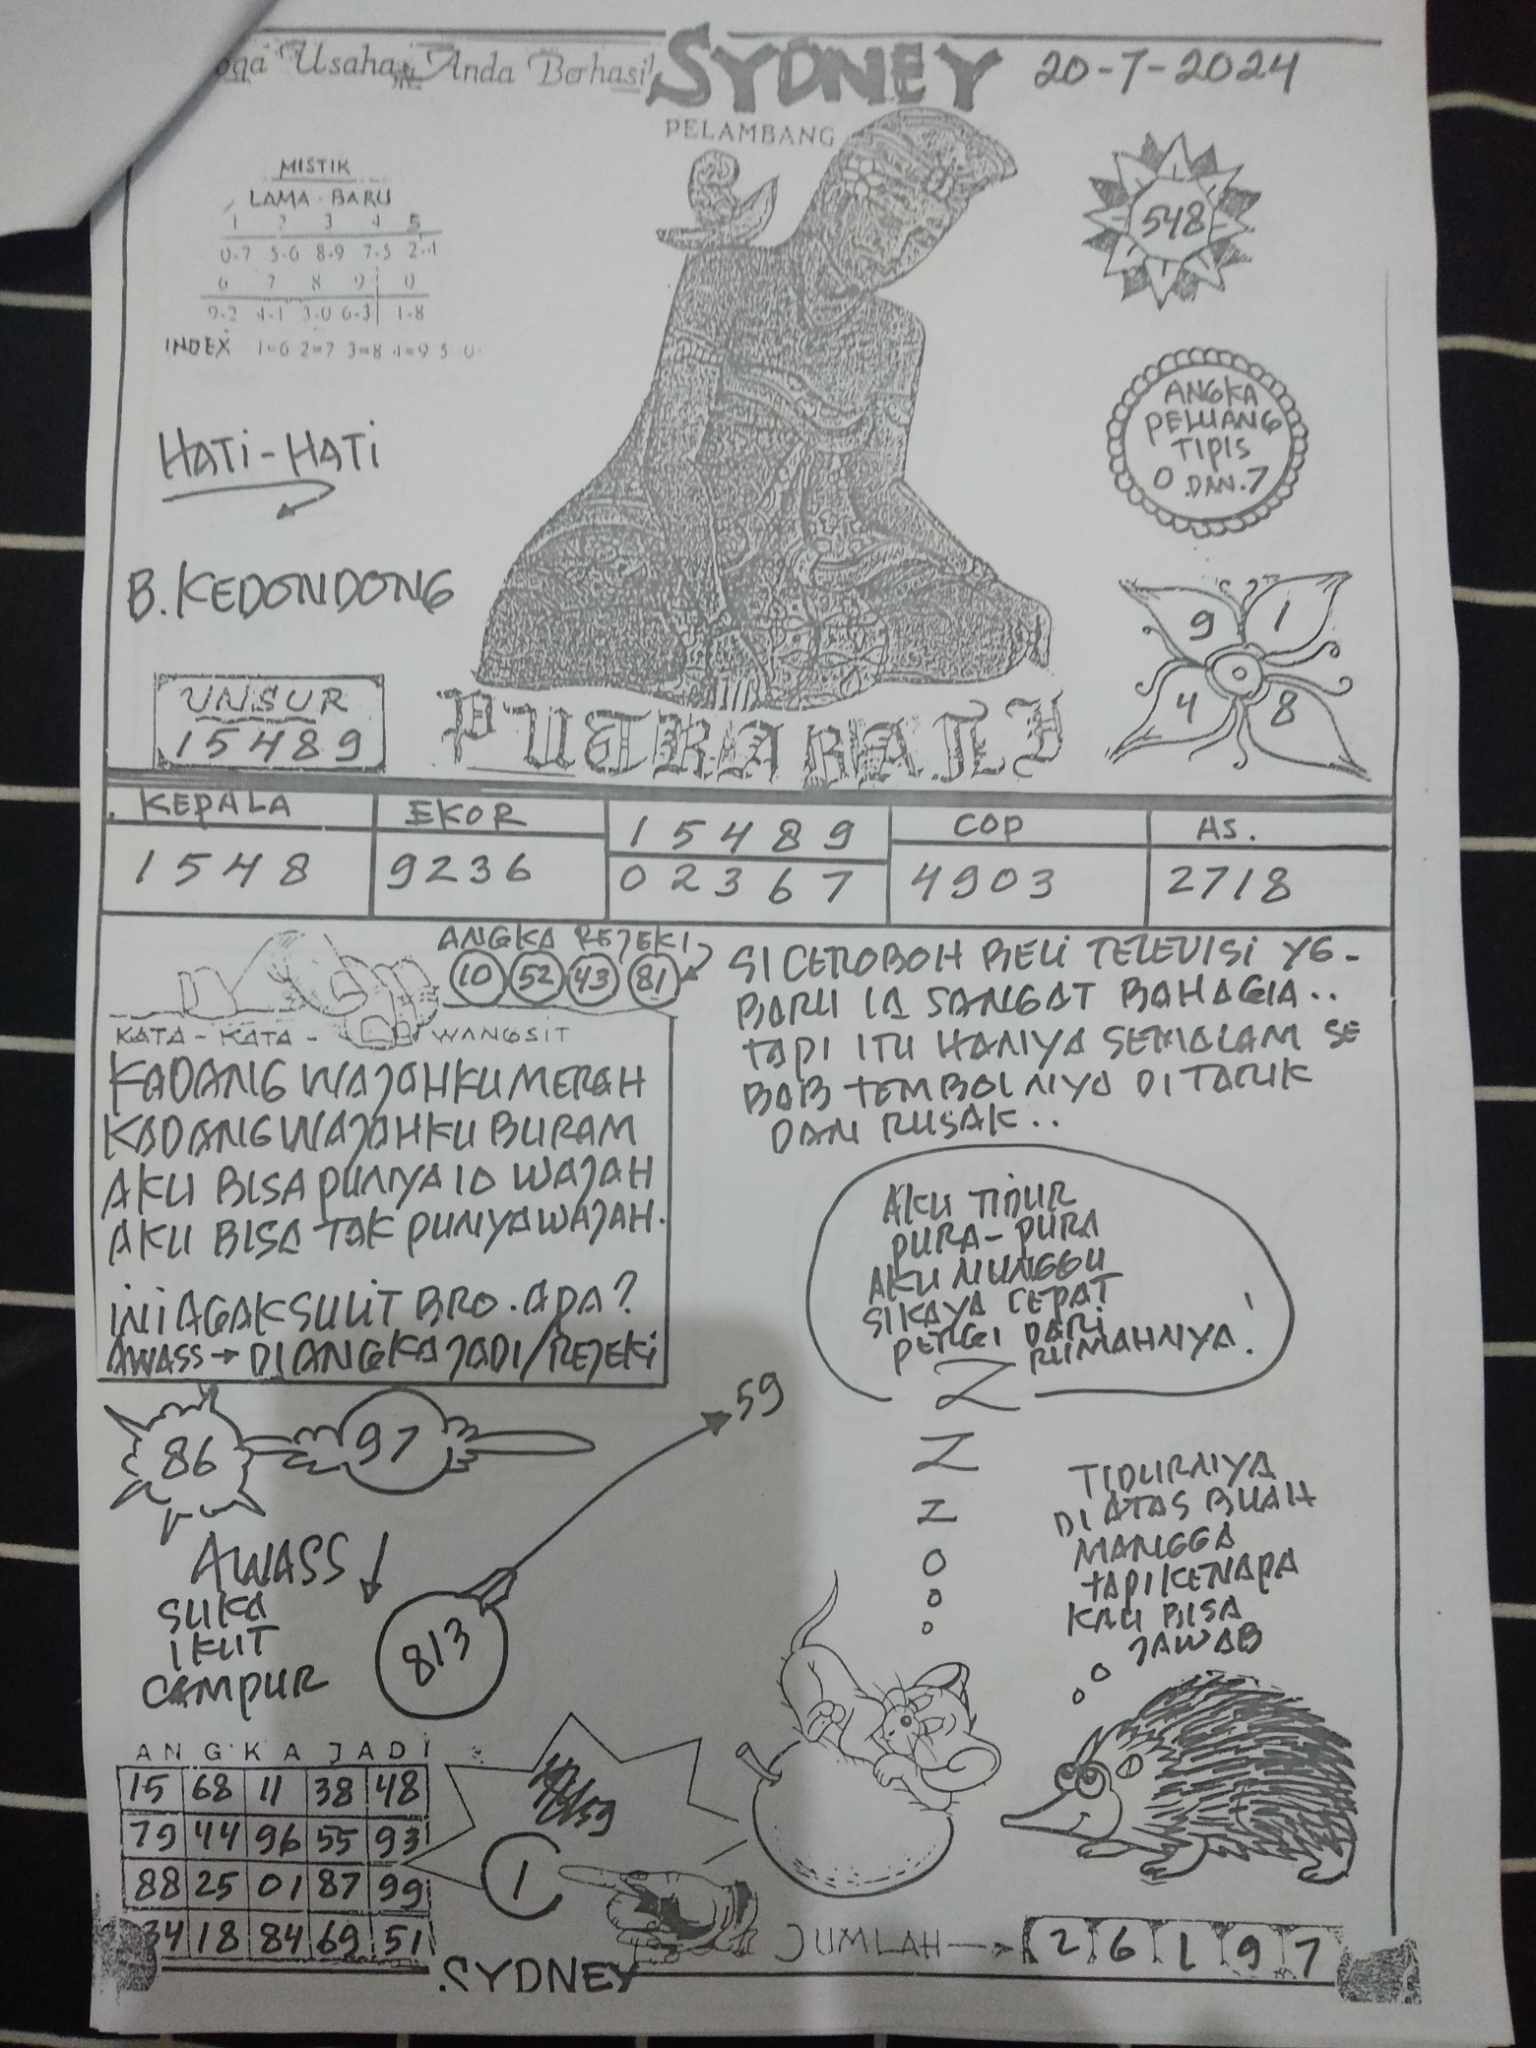 Usaha Anda Berhasil
SYDNEY
20-7-2024
PELAMBANG
MISTIK
LAMA - BARU
1 2 3 4 5
0-7 5-6 8-9 7-5 2-4
6 7 8 9 0
9-2 4-1 3-0 6-3 1-8
INDEX 1=6 2=7 3=8 4=9 5 0
548
ANGKA
PELUANG
TIPIS
0 DAN 7
HATI-HATI
B. KEDONDONG
9 1
4 8
UNSUR
15489
PUTRA BALI
KEPALA
1548
EKOR
9236
15489
02367
COP
4903
AS.
2718
ANGKA REJEKI
10 52 43 81
KATA-KATA-WANGSIT
KADANG WAJAHKU MERAH
KADANG WAJAHKU BURAM
AKU BISA PUNYA 10 WAJAH
AKU BISA TAK PUNYA WAJAH.
INI AGAK SULIT BRO. ADA?
AWASS → DI ANGKA JADI/REJEKI
SI CEROBOH BELI TELEVISI YG-
BARU IA SANGAT BAHAGIA..
TAPI ITU HANYA SEMALAM SE
BAB TEMBOLNYA DI TARIK
DAN RUSAK..
AKU TIDUR
PURA-PURA
AKU NUNGGU
SIKAYA CEPAT
PERGI DARI
RUMAHNYA!
Z
Z
Z
TIDURNYA
DI ATAS BUAH
MANGGA
TAPI KENAPA
KAU BISA
JAWAB
86 97
59
AWASS
SUKA
IKUT
CAMPUR
813
ANGKA JADI
15 68 11 38 48
79 44 96 55 93
88 25 01 87 99
34 18 84 69 51
1
SYDNEY
JUMLAH → 2 6 1 9 7